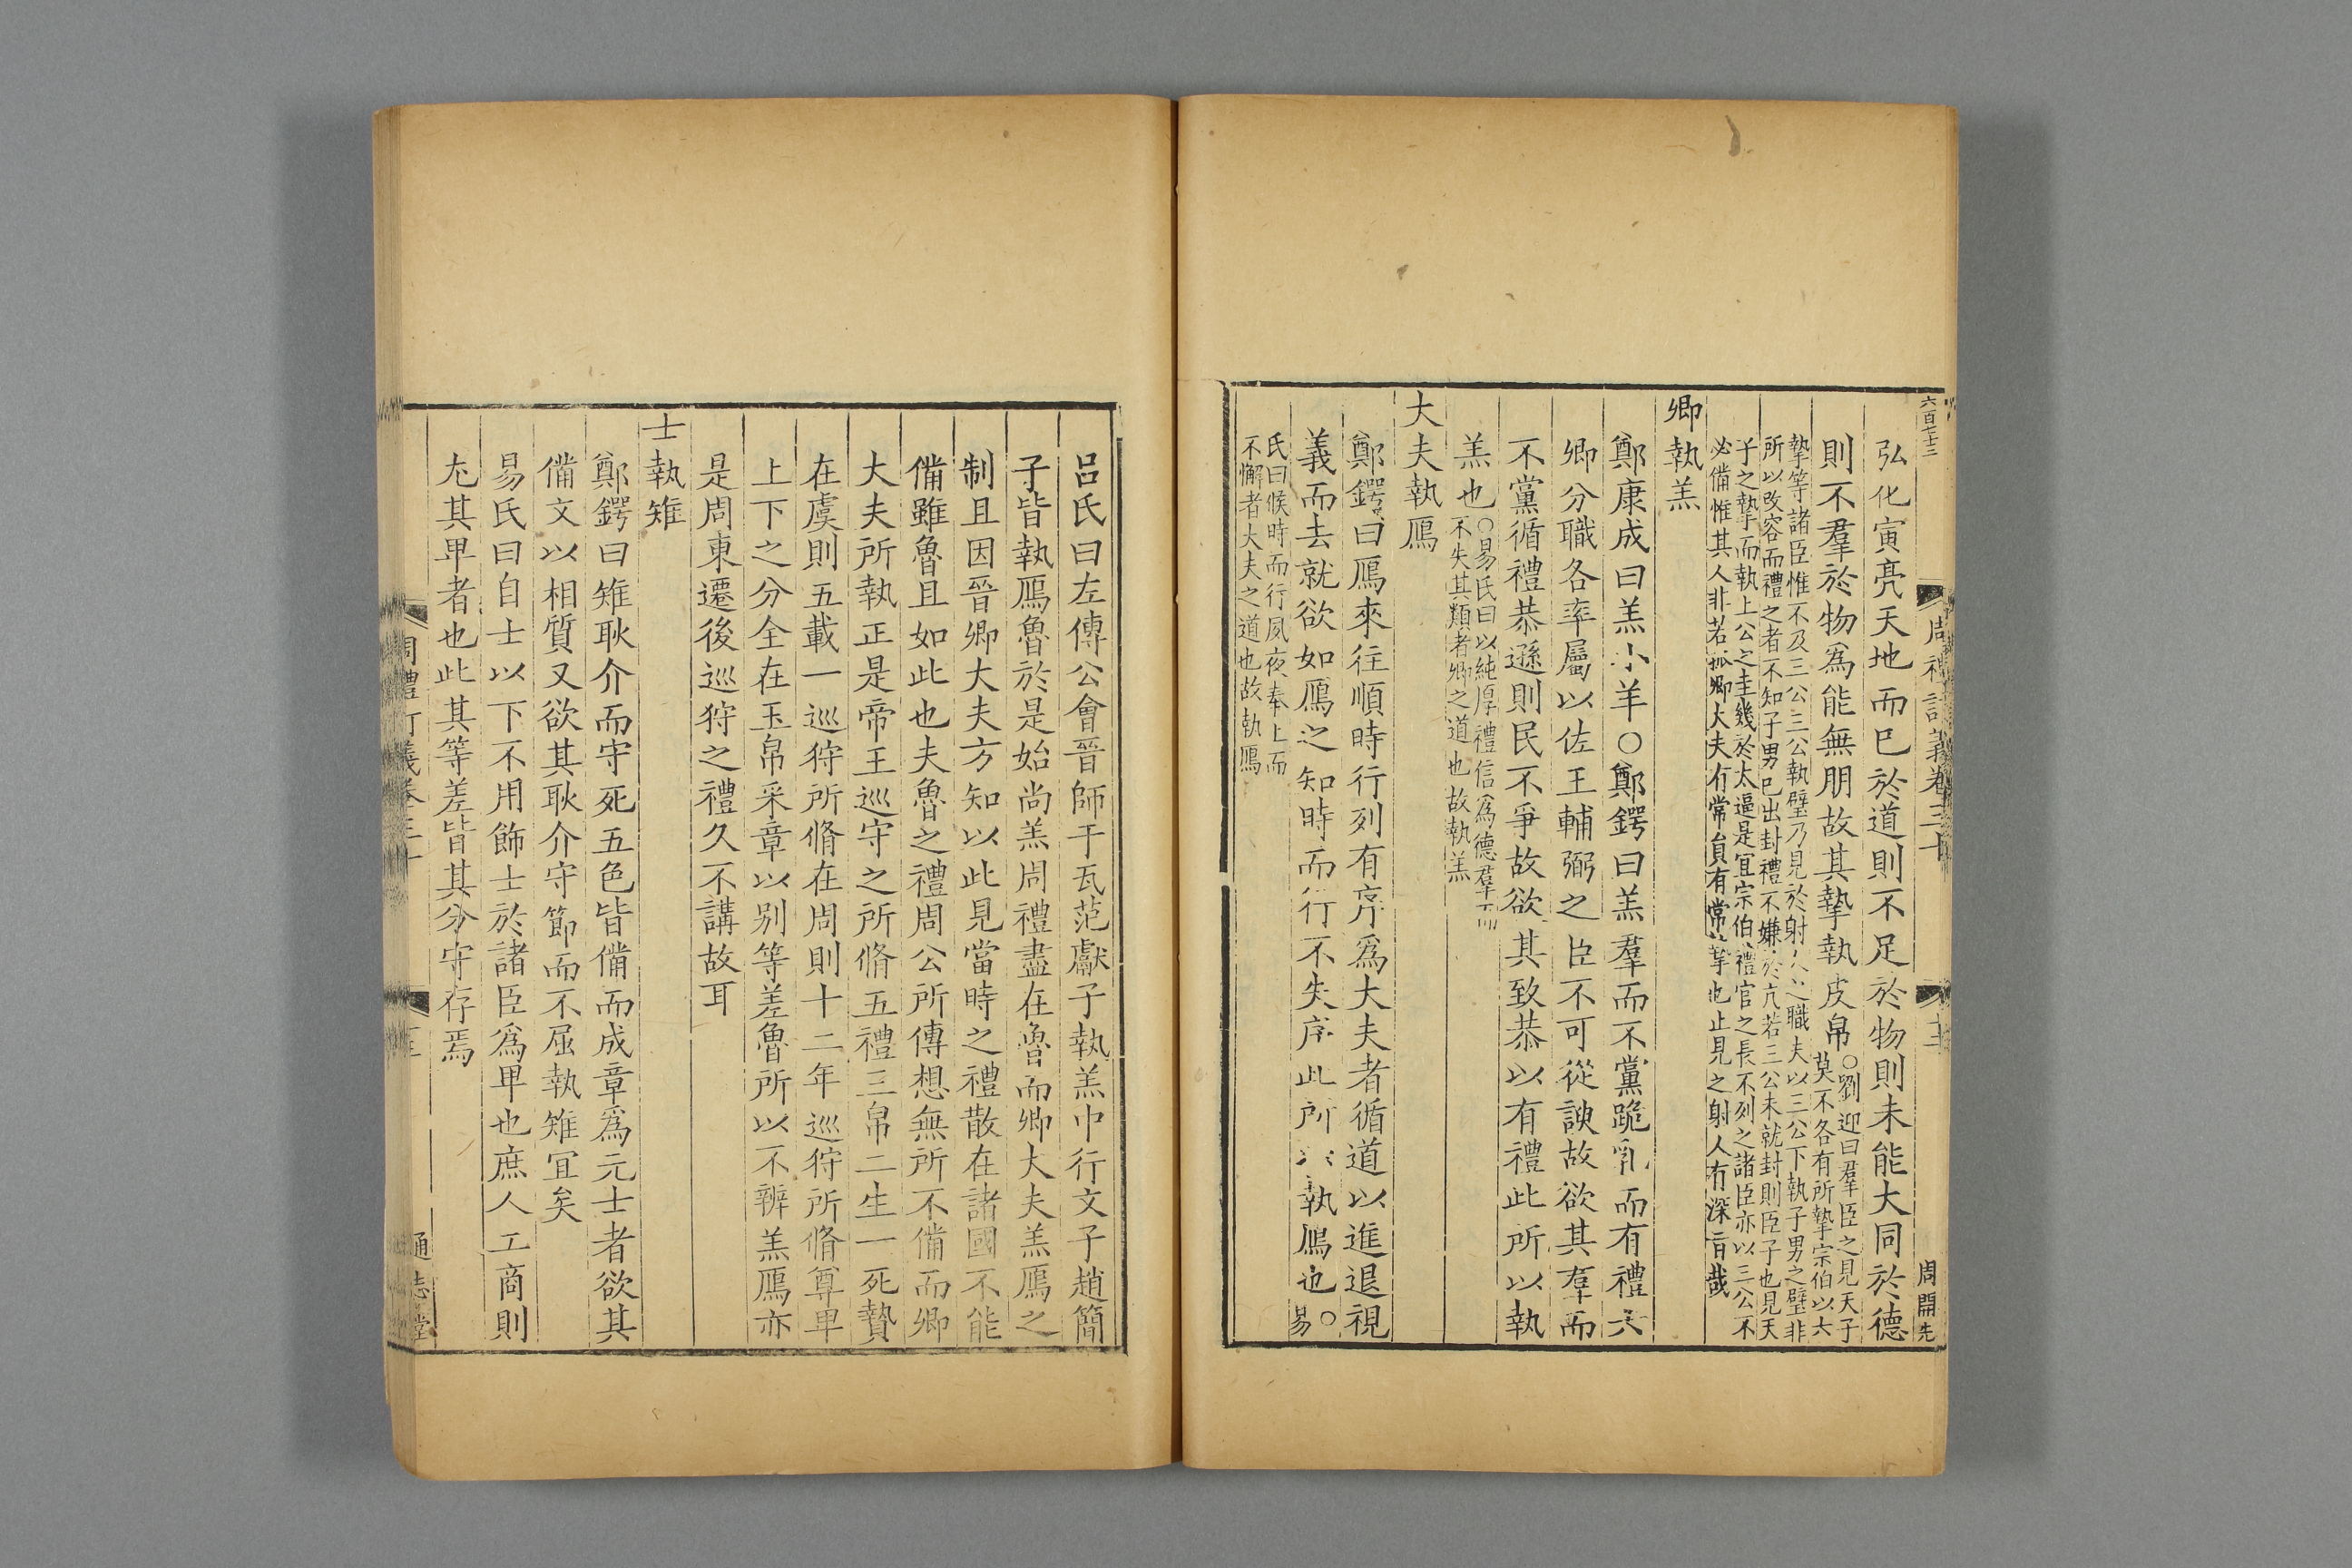 六百七十三
周禮訂義卷三十
周開先
弘化寅亮天地而已於道則不足於物則未能大同於德
則不羣於物爲能無朋故其摯執皮帛
○劉迎曰羣臣之見天子
莫不各有所摯宗伯以六
摯等諸臣惟不及三公三公執璧乃見於射人之職夫以三公下執子男之璧非
所以改容而禮之者不知子男已出封禮不嫌於亢若三公未就封則臣子也見天
子之摯而執上公之圭幾於太逼是宜宗伯禮官之長不列之諸臣亦以三公不
必備惟其人非若孤卿大夫有常員有常摯也止見之射人有深旨哉
卿執羔
鄭康成曰羔小羊○鄭鍔曰羔羣而不黨跪乳而有禮六
卿分職各率屬以佐王輔弼之臣不可從諛故欲其羣而
不黨循禮恭遜則民不爭故欲其致恭以有禮此所以執
羔也
○易氏曰以純厚禮信爲德羣而
不失其類者卿之道也故執羔
大夫執鴈
鄭鍔曰鴈來往順時行列有序爲大夫者循道以進退視
義而去就欲如鴈之知時而行不失序此所以執鴈也
○易
氏曰候時而行夙夜奉上而
不懈者大夫之道也故執鴈
呂氏曰左傳公會晉師于瓦范獻子執羔中行文子趙簡
子皆執鴈魯於是始尚羔周禮盡在魯而卿大夫羔鴈之
制且因晉卿大夫方知以此見當時之禮散在諸國不能
備雖魯且如此也夫魯之禮周公所傳想無所不備而卿
大夫所執正是帝王巡守之所脩五禮三帛二生一死贄
在虞則五載一巡狩所脩在周則十二年巡狩所脩尊卑
上下之分全在玉帛采章以別等差魯所以不辨羔鴈亦
是周東遷後巡狩之禮久不講故耳
士執雉
鄭鍔曰雉耿介而守死五色皆備而成章爲元士者欲其
備文以相質又欲其耿介守節而不屈執雉宜矣
易氏曰自士以下不用飾士於諸臣爲卑也庶人工商則
尤其卑者也此其等差皆其分守存焉
周禮訂義卷三十
通志堂